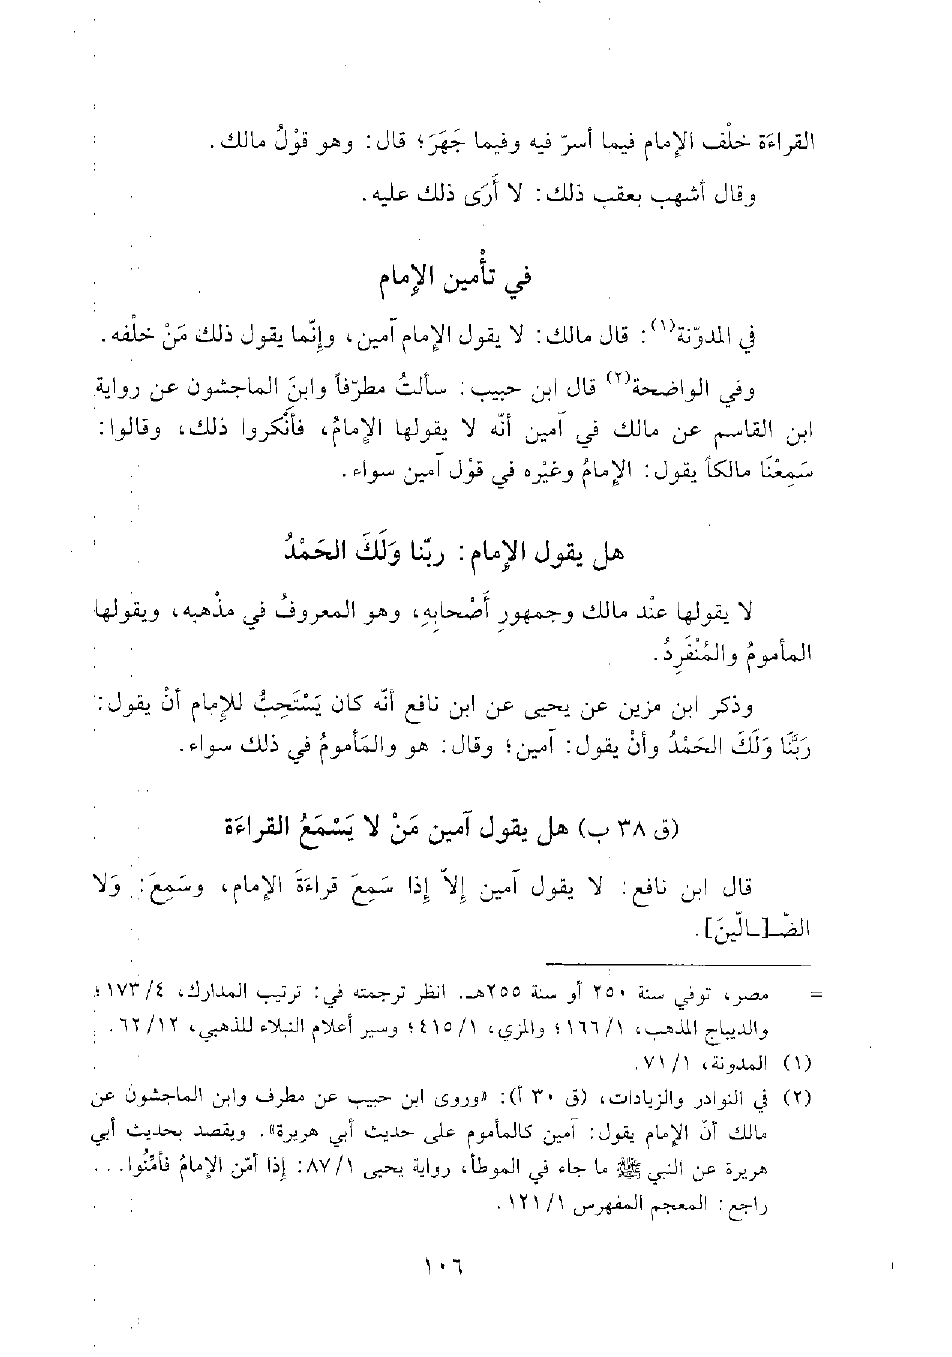 القراءَة خلْف الإمام فيما أسرّ فيه وفيما جَهَرَ؛ قال: وهو قوْلُ مالك.
وقال أشهب بعقب ذلك: لا أَرَى ذلك عليه.
في تأْمين الإمام
في المدوّنة(١): قال مالك: لا يقول الإمام آمين، وإنّما يقول ذلك مَنْ خلْفه.
وفي الواضحة(٢) قال ابن حبيب: سألتُ مطرّفاً وابنَ الماجشون عن رواية
ابن القاسم عن مالك في آمين أنّه لا يقولها الإمامُ، فأنْكروا ذلك، وقالوا:
سَمِعْنَا مالكاً يقول: الإمامُ وغيْره في قوْل آمين سواء.
هل يقول الإمام: ربّنا وَلَكَ الحَمْدُ
لا يقولها عنْد مالك وجمهورِ أَصْحابِهِ، وهو المعروفُ في مذْهبه، ويقولها
المأمومُ والمُنْفَرِدُ.
وذكر ابن مزين عن يحيى عن ابن نافع أنّه كان يَسْتَحِبُّ للإمام أنْ يقول:
رَبَّنَا وَلَكَ الحَمْدُ وأنْ يقول: آمين؛ وقال: هو والمَأمومُ في ذلك سواء.
(ق ٣٨ ب) هل يقول آمين مَنْ لا يَسْمَعُ القراءَة
قال ابن نافع: لا يقول آمين إلاّ إذا سَمِعَ قراءَةَ الإمام، وسَمِعَ: وَلا
الضّـ[ـالّينَ].
= مصر، توفي سنة ٢٥٠ أو سنة ٢٥٥هـ. انظر ترجمته في: ترتيب المدارك، ٤/ ١٧٣؛
والديباج المذهب، ١/ ١٦٦؛ والمزي، ١/ ٤١٥؛ وسير أعلام النبلاء للذهبي، ١٢/ ٦٢.
(١) المدونة، ١/ ٧١.
(٢) في النوادر والزيادات، (ق ٣٠ أ): «وروى ابن حبيب عن مطرف وابن الماجشون عن
مالك أنّ الإمام يقول: آمين كالمأموم على حديث أبي هريرة». ويقصد بحديث أبي
هريرة عن النبي ﷺ ما جاء في الموطأ، رواية يحيى ١/ ٨٧: إذا أمّن الإمامُ فأَمِّنُوا...
راجع: المعجم المفهرس ١/ ١٢١.
١٠٦